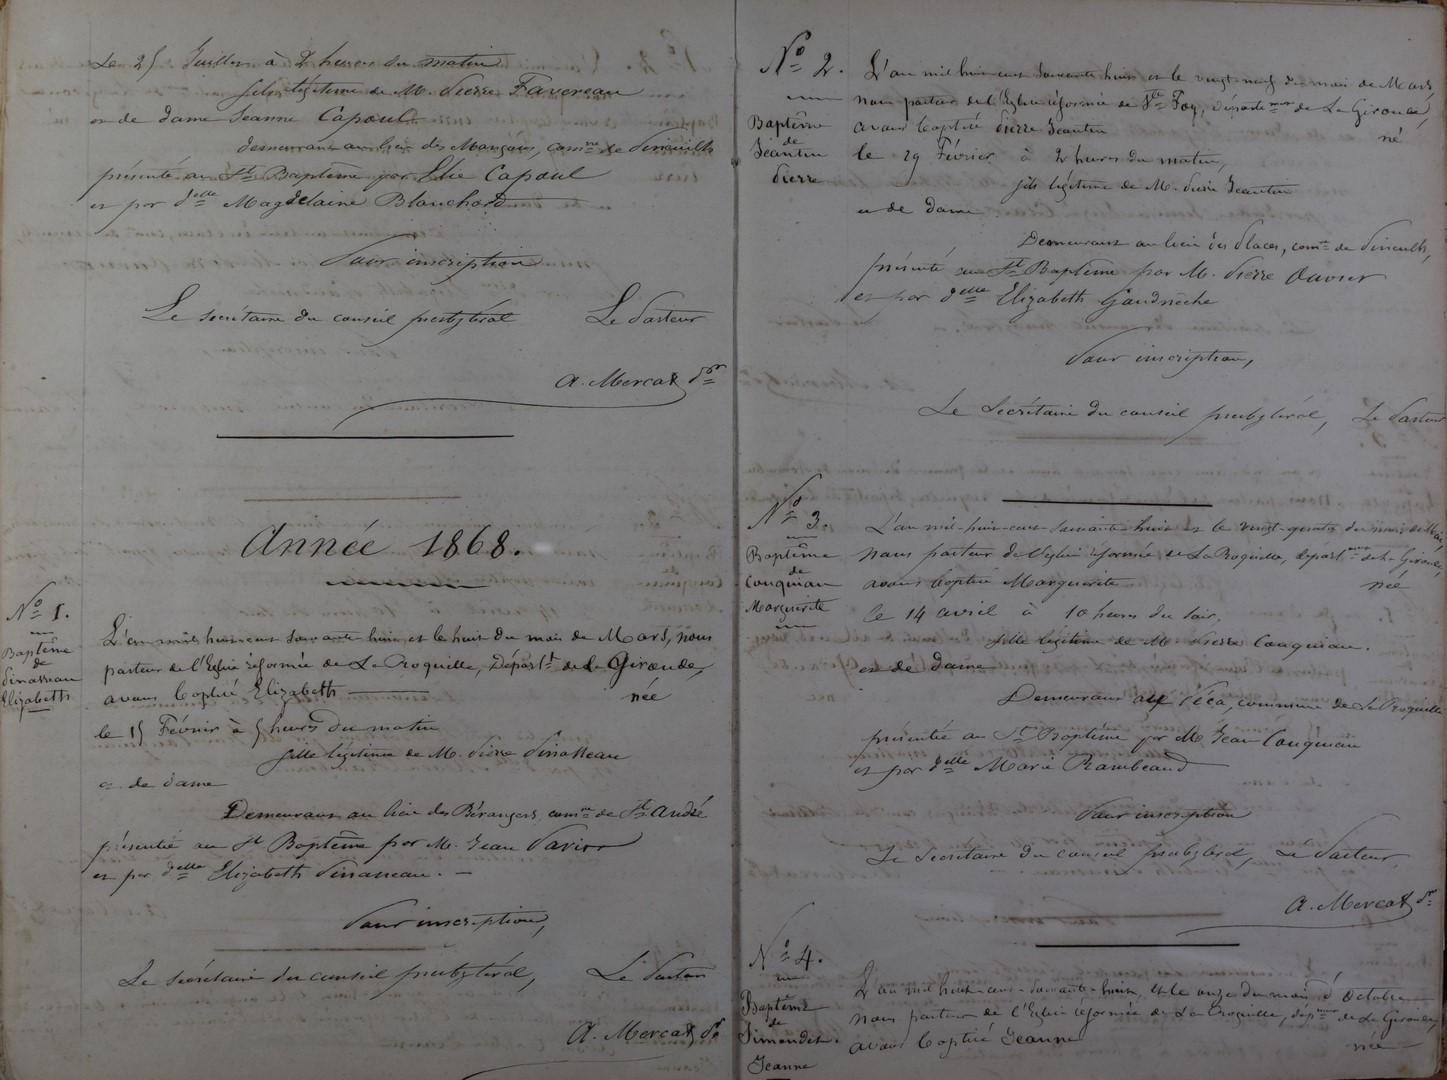 Le 25 Juillet à 2 heures du matin
fils légitime de M. Pierre Favereau
et de dame Jeanne Capoul
demeurant au lieu des Mangons, comne de Pineuilh
présenté au St Baptême par Elie Capoul
et par delle Magdelaine Blanchard
Pour inscription
Le secrétaire du conseil presbytéral Le Pasteur
A. Mercat pr
Année 1868.
No 1.
Baptême
de
Pinasseau
Elizabeth
L'an mil huit cent soixante huit et le huit du mois de Mars, nous
pasteur de l'Eglise réformée de La Roquille, Départt de la Gironde,
avons baptisé Elizabeth née
le 15 Février à 5 heures du matin
fille légitime de M. Pierre Pinasseau
et de dame
Demeurant au lieu des Bérangers, comne de St André
présentée au St Baptême par M. Jean
et par delle Elizabeth Pinasseau. —
Pour inscription,
Le secrétaire du conseil presbytéral, Le Pasteur
A. Mercat pr
No 2.
Baptême
de
Jeantin
Pierre
L'an mil huit cent soixante huit et le vingt neuf du mois de Mars,
nous pasteur de l'Eglise réformée de Ste Foy, Département de La Gironde,
avons baptisé Pierre Jeantin né
le 29 Février à 2 heures du matin,
fils légitime de M. Pierre Jeantin
et de dame
Demeurant au lieu des Places, comne de Pineuilh,
présenté au St Baptême par M. Pierre
et par delle Elizabeth Gaudrèche
Pour inscription,
Le Secrétaire du conseil presbytéral, Le Pasteur
No 3.
Baptême
de
Couquiau
Marguerite
L'an mil-huit-cent-soixante-huit et le vingt-quatre du mois de Mai,
nous pasteur de l'église réformée de La Roquille, départment de la Gironde,
avons baptisé Marguerite née
le 14 avril à 10 heures du soir,
fille légitime de M. Pierre Couquiau.
et de dame
Demeurant au Péca, commune de La Roquille
présentée au St Baptême par M. Jean Couquiau
et par delle Marie Rambeaud
Pour inscription
Le Secrétaire du conseil presbytéral, Le Pasteur,
A. Mercat pr
No 4.
Baptême
de
Simondet.
Jeanne
L'an mil huit-cent-soixante-huit, et le onze du mois d'Octobre
nous pasteur de l'Eglise réformée de La Roquille, dépment de La Gironde,
avons baptisé Jeanne née